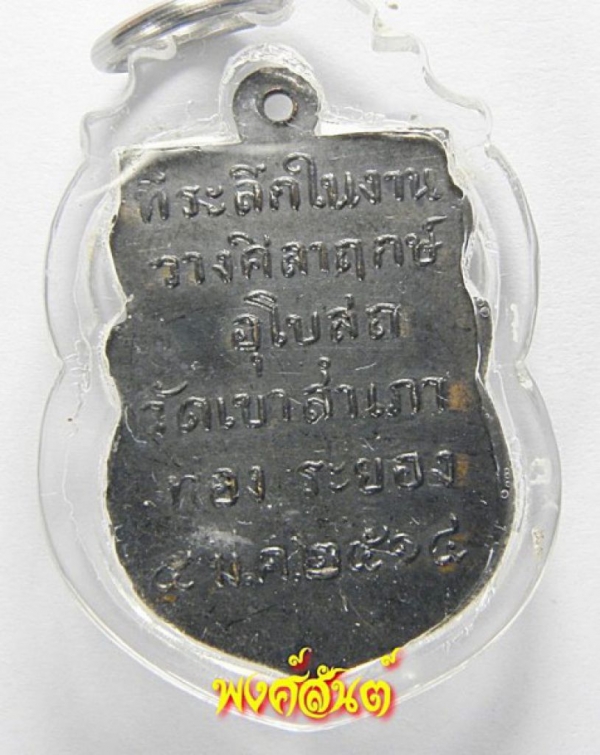 ที่ระลึกในงาน
วางศิลาฤกษ์
อุโบสถ
วัดเขาสำเภา
ทอง ระยอง
๕ ม.ค.๒๕๑๕
พงศ์สันต์